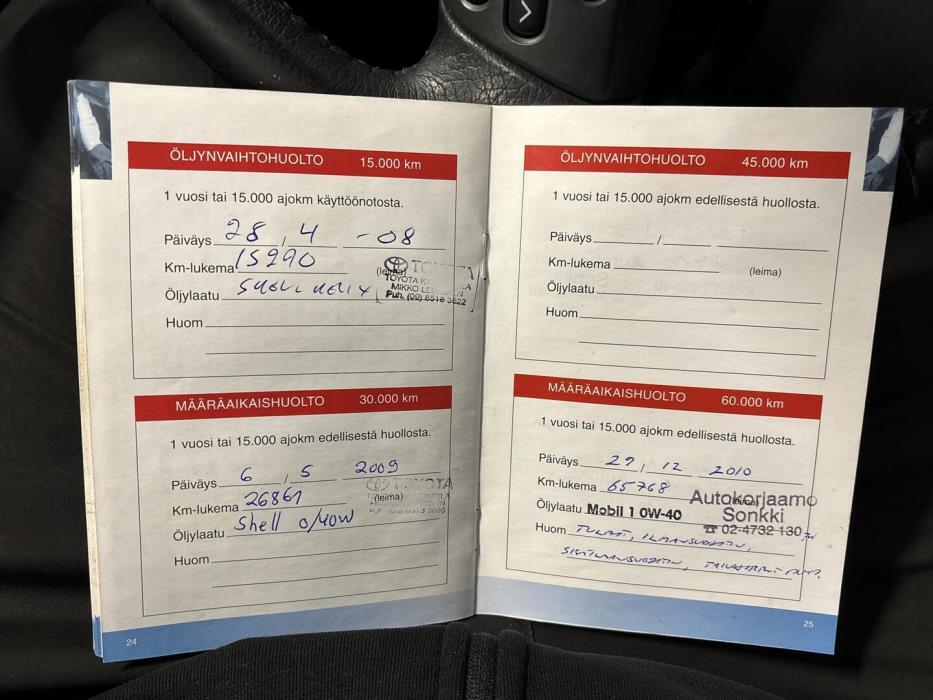 ÖLJYNVAIHTOHUOLTO 15.000 km
1 vuosi tai 15.000 ajokm käyttöönotosta.
Päiväys 28 / 4 -08
Km-lukema 15290 (leima)
Öljylaatu SHELL HELIX
TOYOTA
TOYOTA
MIKKO
Puh. (09) 8518 3622
Huom
MÄÄRÄAIKAISHUOLTO 30.000 km
1 vuosi tai 15.000 ajokm edellisestä huollosta.
Päiväys 6 , 5 2009
Km-lukema 26861 (leima)
Öljylaatu Shell 0/40W
TOYOTA
Huom
24
ÖLJYNVAIHTOHUOLTO 45.000 km
1 vuosi tai 15.000 ajokm edellisestä huollosta.
Päiväys /
Km-lukema (leima)
Öljylaatu
Huom
MÄÄRÄAIKAISHUOLTO 60.000 km
1 vuosi tai 15.000 ajokm edellisestä huollosta.
Päiväys 29 / 12 2010
Km-lukema 65768
Öljylaatu Mobil 1 0W-40
Autokorjaamo
Sonkki
☎ 02-4732 130
Huom TULPAT, ILMANSUODATIN,
SISÄILMANSUODATIN,
25